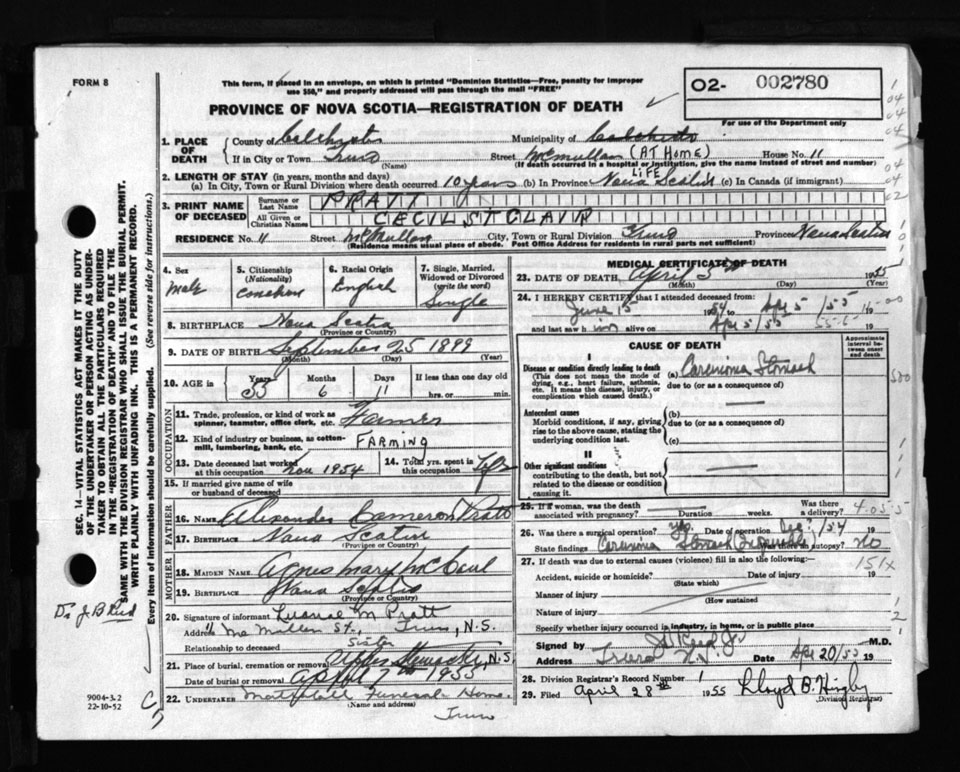 FORM 8
This form, if placed in an envelope, on which is printed "Dominion Statistics—Free, penalty for improper
use $50," and properly addressed will pass through the mail "FREE"
PROVINCE OF NOVA SCOTIA—REGISTRATION OF DEATH
O2- 002780
For use of the Department only
1. PLACE OF DEATH
County of Colchester Municipality of Colchester
If in City or Town Truro (Name) Street McMullan (AT HOME) House No. 11
(If death occurred in a hospital or institution, give the name instead of street and number)
2. LENGTH OF STAY (in years, months and days)
(a) In City, Town or Rural Division where death occurred 10 years (b) In Province LIFE Nova Scotia (c) In Canada (if immigrant)
3. PRINT NAME OF DECEASED
Surname or Last Name PRATT
All Given or Christian Names CECIL ST CLAIR
RESIDENCE No. 11 Street McMullan City, Town or Rural Division Truro Province Nova Scotia
(Residence means usual place of abode. Post Office Address for residents in rural parts not sufficient)
4. Sex Male
5. Citizenship (Nationality)
6. Racial Origin English
7. Single, Married, Widowed or Divorced (write the word) Single
8. BIRTHPLACE Nova Scotia
(Province or Country)
9. DATE OF BIRTH September 25 1899
(Month) (Day) (Year)
10. AGE in Years 55 Months 6 Days 11 If less than one day old hrs. or min.
OCCUPATION
11. Trade, profession, or kind of work as spinner, teamster, office clerk, etc. Farmer
12. Kind of industry or business, as cotton-mill, lumbering, bank, etc. FARMING
13. Date deceased last worked at this occupation Nov 1954
14. Total yrs. spent in this occupation Life
15. If married give name of wife or husband of deceased
FATHER
16. NAME Alexander Cameron Pratt
17. BIRTHPLACE Nova Scotia
(Province or Country)
MOTHER
18. MAIDEN NAME Agnes Mary McCaul
19. BIRTHPLACE Nova Scotia
(Province or Country)
20. Signature of informant M Pratt
Address 11 McMullen St., Truro, N.S.
Relationship to deceased Sister
21. Place of burial, cremation or removal Upper Stewiacke, N.S
Date of burial or removal April 7th 1955
22. UNDERTAKER Funeral Home
(Name and address)
Truro
MEDICAL CERTIFICATE OF DEATH
23. DATE OF DEATH April 5th 1955
(Month) (Day) (Year)
24. I HEREBY CERTIFY that I attended deceased from:
June 15 1954 to Apr 5 /55
and last saw him alive on Apr 5/55 19
CAUSE OF DEATH
Approximate interval between onset and death
I
Disease or condition directly leading to death
(This does not mean the mode of dying, e.g., heart failure, asthenia, etc. It means the disease, injury, or complication which caused death.)
(a) Carcinoma Stomach
due to (or as a consequence of)
Antecedent causes
Morbid conditions, if any, giving rise to the above cause, stating the underlying condition last.
(b)
due to (or as a consequence of)
(c)
II
Other significant conditions
contributing to the death, but not related to the disease or condition causing it.
25. If a woman, was the death associated with pregnancy? Duration weeks. Was there a delivery?
26. Was there a surgical operation? Yes Date of operation Dec /54 19
State findings Carcinoma Stomach (Inoperable) Was there an autopsy? NO
27. If death was due to external causes (violence) fill in also the following:
Accident, suicide or homicide? (State which) Date of injury 19
151X
Manner of injury
(How sustained
Nature of injury
Specify whether injury occurred in industry, in home, or in public place
Signed by M.D.
Address Truro N.S. Date Apr 20/55 19
28. Division Registrar's Record Number
29. Filed April 28th 1955 Lloyd B.
(Division Registrar)
SEC. 14—VITAL STATISTICS ACT MAKES IT THE DUTY
OF THE UNDERTAKER OR PERSON ACTING AS UNDER-
TAKER TO OBTAIN ALL THE PARTICULARS REQUIRED
IN THE "REGISTRATION OF DEATH" AND TO FILE THE
SAME WITH THE DIVISION REGISTRAR WHO SHALL ISSUE THE BURIAL PERMIT.
WRITE PLAINLY WITH UNFADING INK. THIS IS A PERMANENT RECORD.
Every item of information should be carefully supplied. (See reverse side for instructions.)
9004-3.2
22-10-52